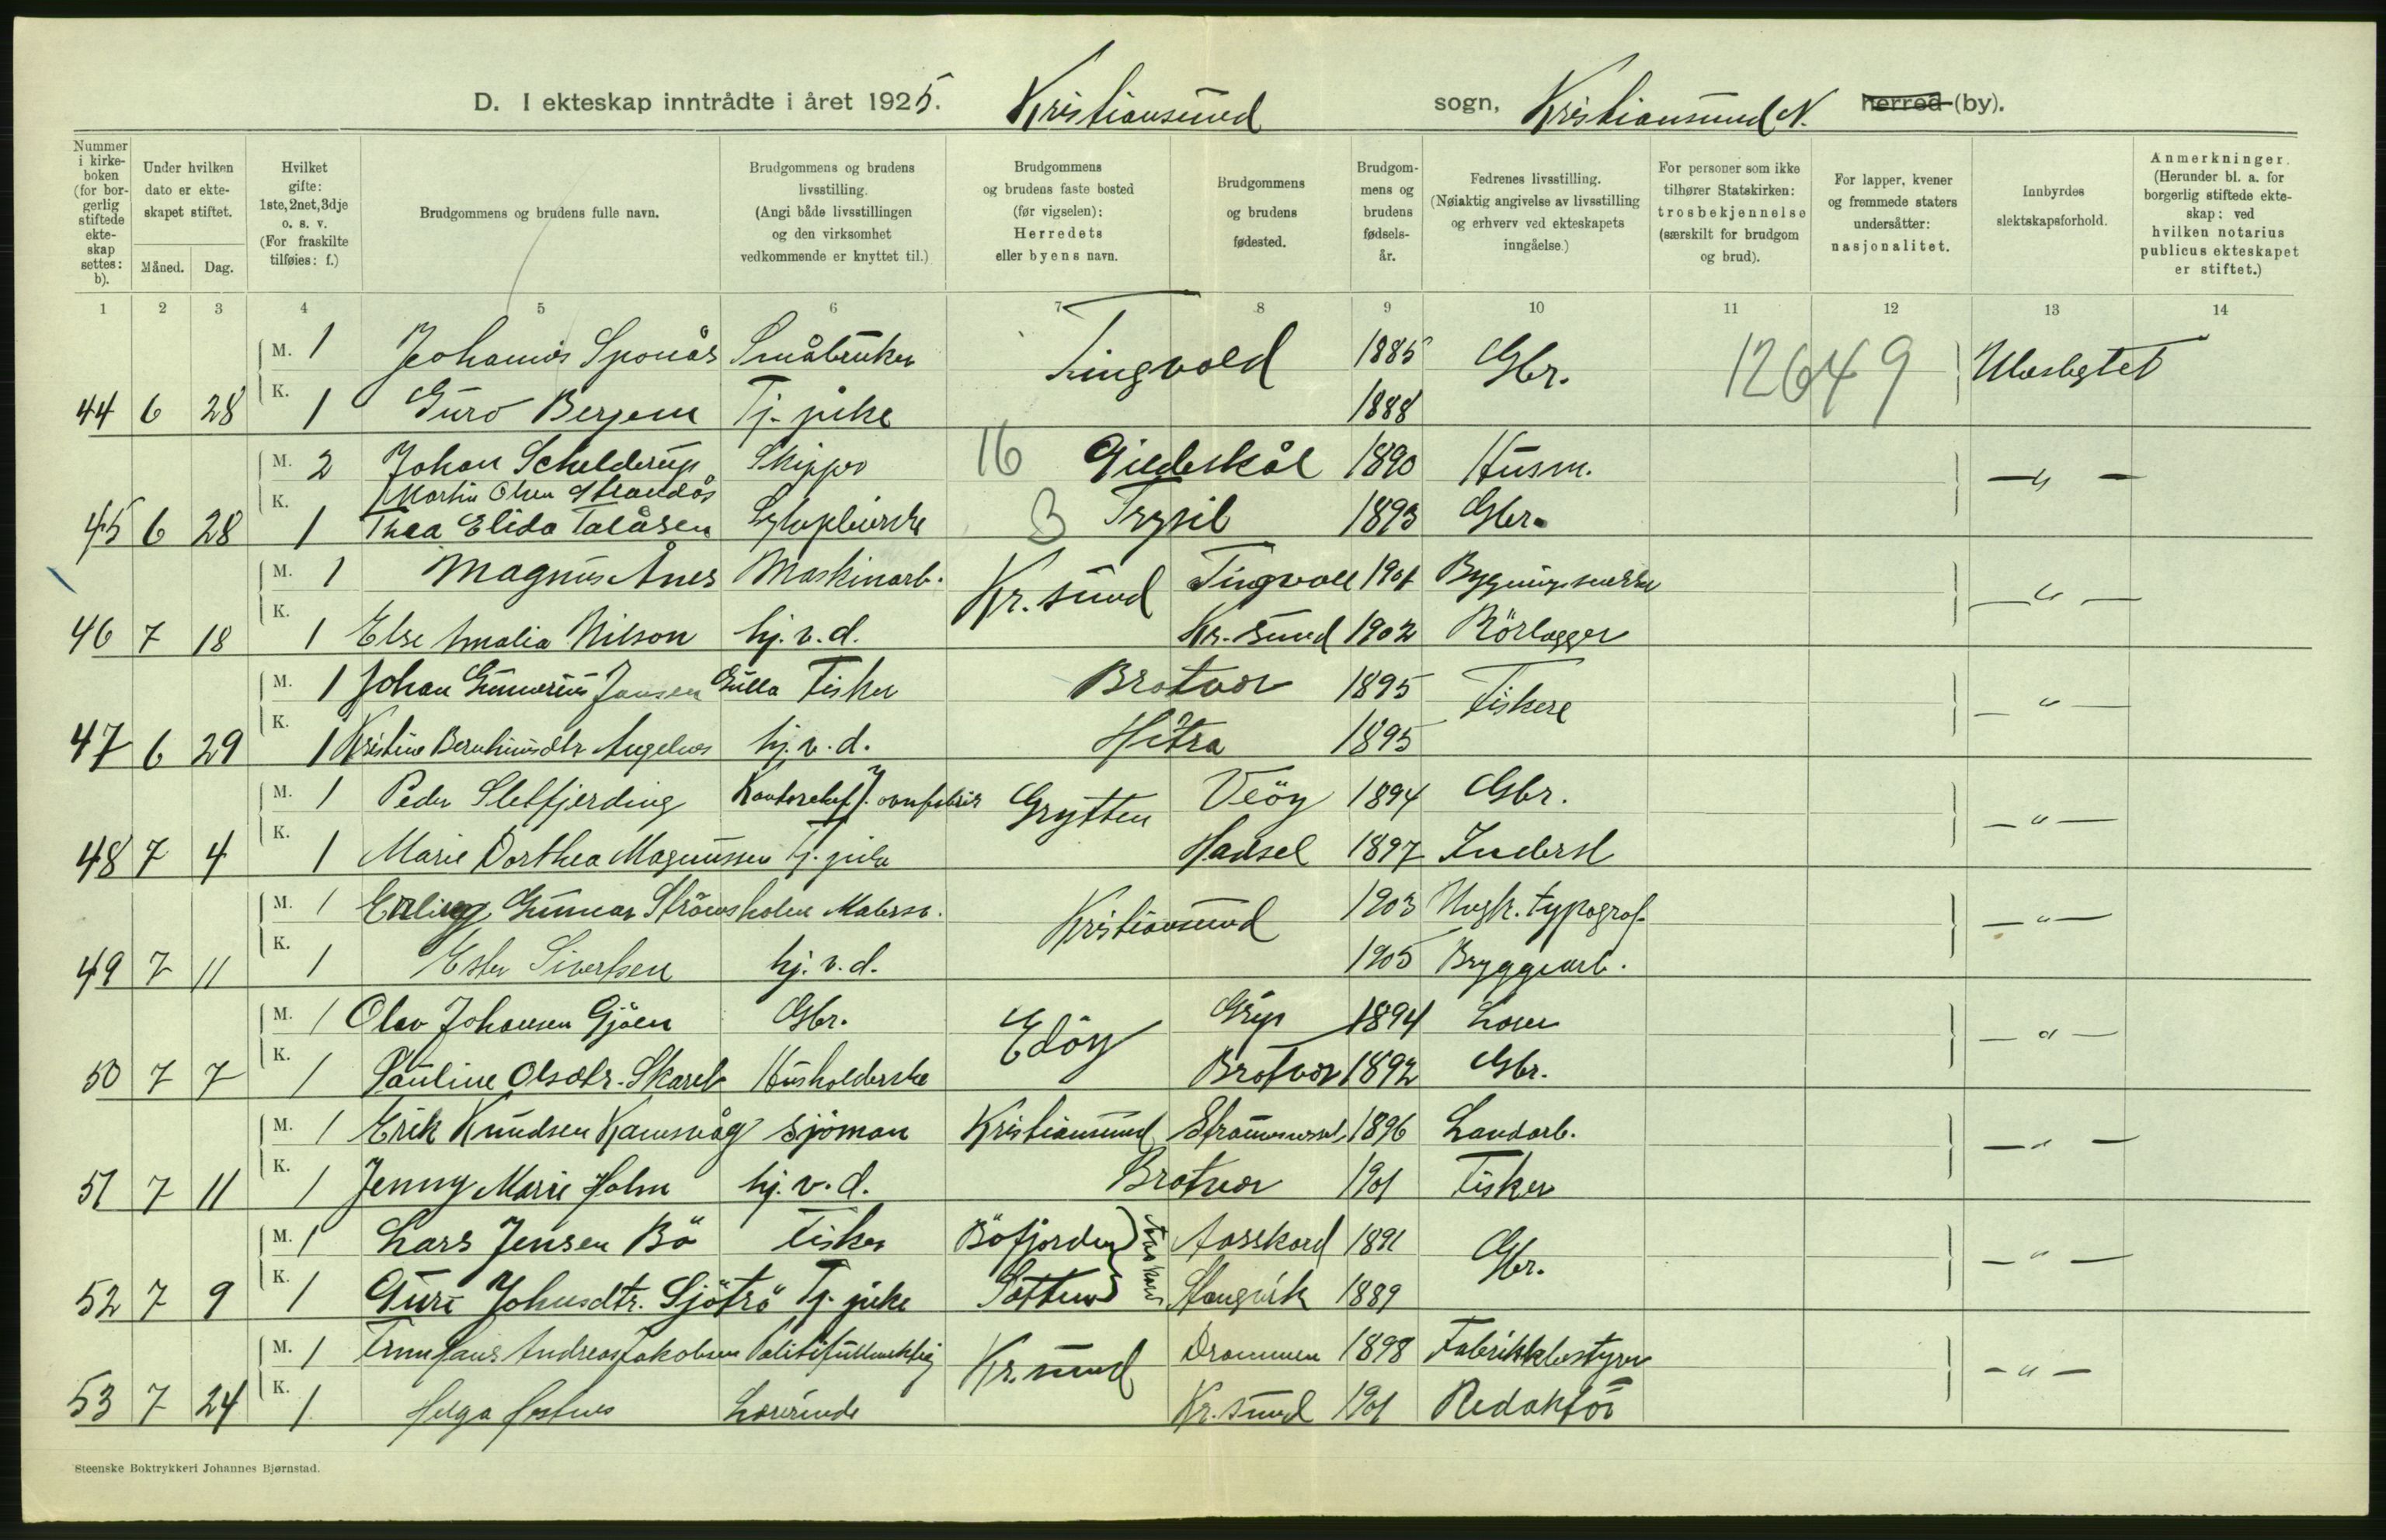 D. I ekteskap inntrådte i året 1925. Kristiansund sogn, Kristiansund N. herred (by).
Nummer i kirkeboken (for borgerlig stiftede ekteskap settes: b).
Under hvilken dato er ekteskapet stiftet.
Måned. Dag.
Hvilket gifte: 1ste, 2net, 3dje o. s. v. (For fraskilte tilføies: f.)
Brudgommens og brudens fulle navn.
Brudgommens og brudens livsstilling. (Angi både livsstillingen og den virksomhet vedkommende er knyttet til.)
Brudgommens og brudens faste bosted (før vigselen): Herredets eller byens navn.
Brudgommens og brudens fødested.
Brudgommens og brudens fødselsår.
Fedrenes livsstilling. (Nøiaktig angivelse av livsstilling og erhverv ved ekteskapets inngåelse.)
For personer som ikke tilhører Statskirken: trosbekjennelse (særskilt for brudgom og brud).
For lapper, kvener og fremmede staters undersåtter: nasjonalitet.
Innbyrdes slektskapsforhold.
Anmerkninger. (Herunder bl. a. for borgerlig stiftede ekteskap: ved hvilken notarius publicus ekteskapet er stiftet.)
1 2 3 4 5 6 7 8 9 10 11 12 13 14
M. 1 Johannes Sponås Småbruker Tingvold 1885 Gbr. 12649 Ubeslegtet
44 6 28 K. 1 Guro Bergem Tj. pike 1888
M. 2 Johan Schelderup Skipper 16 Gildeskål 1890 Husm. — " —
Martin Olsen Strandås
45 6 28 K. 1 Thea Elida Talåsen Sykepleierske 3 Trysil 1893 Gbr.
M. 1 Magnus Ånes Maskinarb. Kr. sund Tingvoll 1901 Bygningssnekker — " —
46 7 18 K. 1 Else Amalia Nilson hj. v. d. Kr. sund 1902 Rörlegger
M. 1 Johan Gunnerius Jansen Gulla Fisker Brattvær 1895 Fiskere — " —
47 6 29 K. 1 Kristine Bernhinusdtr. hj. v. d. Hitra 1895
M. 1 Peder Sletfjerding Kontorchef ovnfabrik Grytten Veöy 1894 Gbr. — " —
48 7 4 K. 1 Marie Dorthea Magnussen Tj. pike Hadsel 1897 Inderst
M. 1 Erling Gunnar Strömsholm Malersv. Kristiansund 1903 Ugft. typograf — " —
49 7 11 K. 1 Ester Sivertsen hj. v. d. 1905 Bryggearb.
M. 1 Olav Johansen Gjöen Gbr. Edöy Grip 1894 Losen — " —
50 7 7 K. 1 Pauline Olsdtr. Skaret Husholderske Brattvær 1892 Gbr.
M. 1 Erik Knudsen Kamsvåg Sjöman Kristiansund 1896 Landarb. — " —
51 7 11 K. 1 Jenny Marie Holm hj. v. d. Brattvær 1901 Fisker
M. 1 Lars Jensen Bö Fisker Böfjorden Aasskard 1891 Gbr. — " —
52 7 9 K. 1 Guri Johnsdtr. Sjötrö Tj. pike Stangvik 1889
M. 1 Hans Andreas Jakobsen Politifullmektig Kr. sund Drammen 1898 Fabrikkbestyrer — " —
53 7 24 K. 1 Helga Lærerinde Kr. sund 1901 Redaktör
Steenske Boktrykkeri Johannes Bjørnstad.